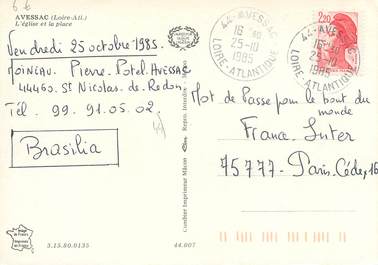 66
AVESSAC (Loire-Atl.)
L'église et la place
Vendredi 25 octobre 1985.
MOINIAU Pierre. Potel. AVESSAC
44460. St Nicolas-de-Redon.
Tél. 99.91.05.02.
Brasilia
44-AVESSAC
16 H
25-10
1985
LOIRE-ATLANTIQUE
44-AVESSAC
25-10
1985
LOIRE-ATLANTIQUE
2,20
Mot de Passe pour le bout du
monde
France Inter
75777 - Paris-Cédex 16
Combier Imprimeur Mâcon
Image
de France
Imprimée
en France
3.15.80.0135
44.007